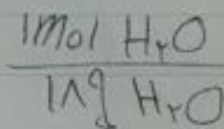 1mol H₂O
1۸g H₂O